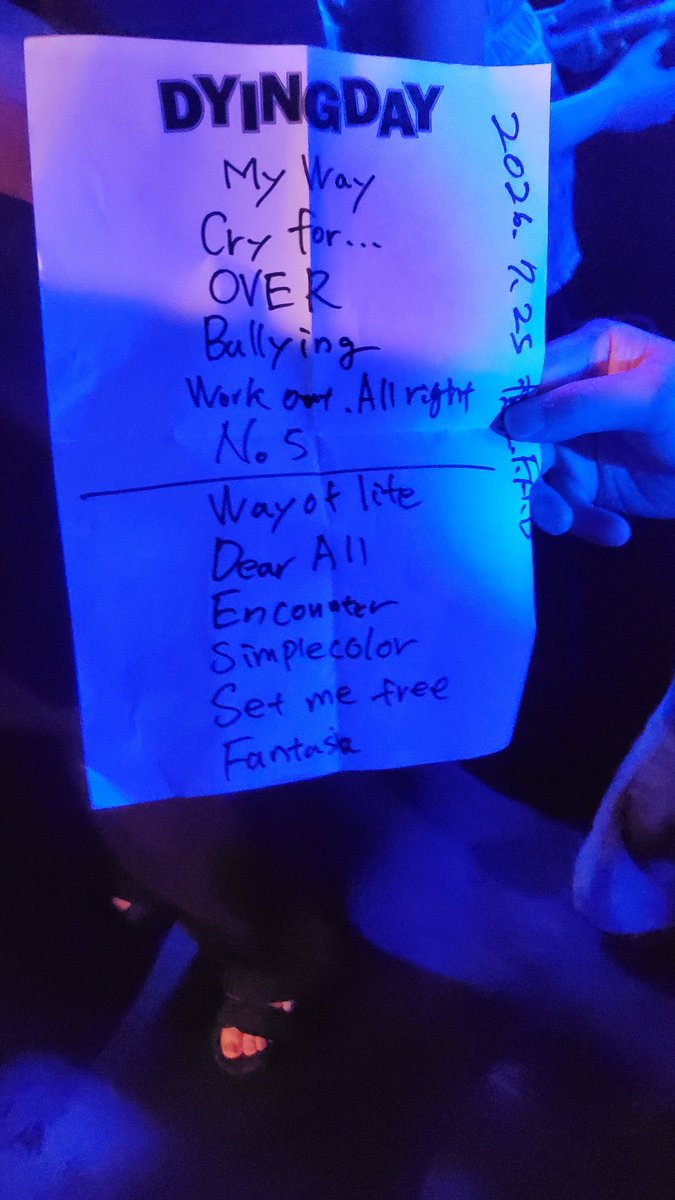 DYINGDAY
My Way
Cry for...
OVER
Bullying
Work out. All right
No. 5
Way of life
Dear All
Encounter
Simplecolor
Set me free
Fantasia
2026. 7. 25